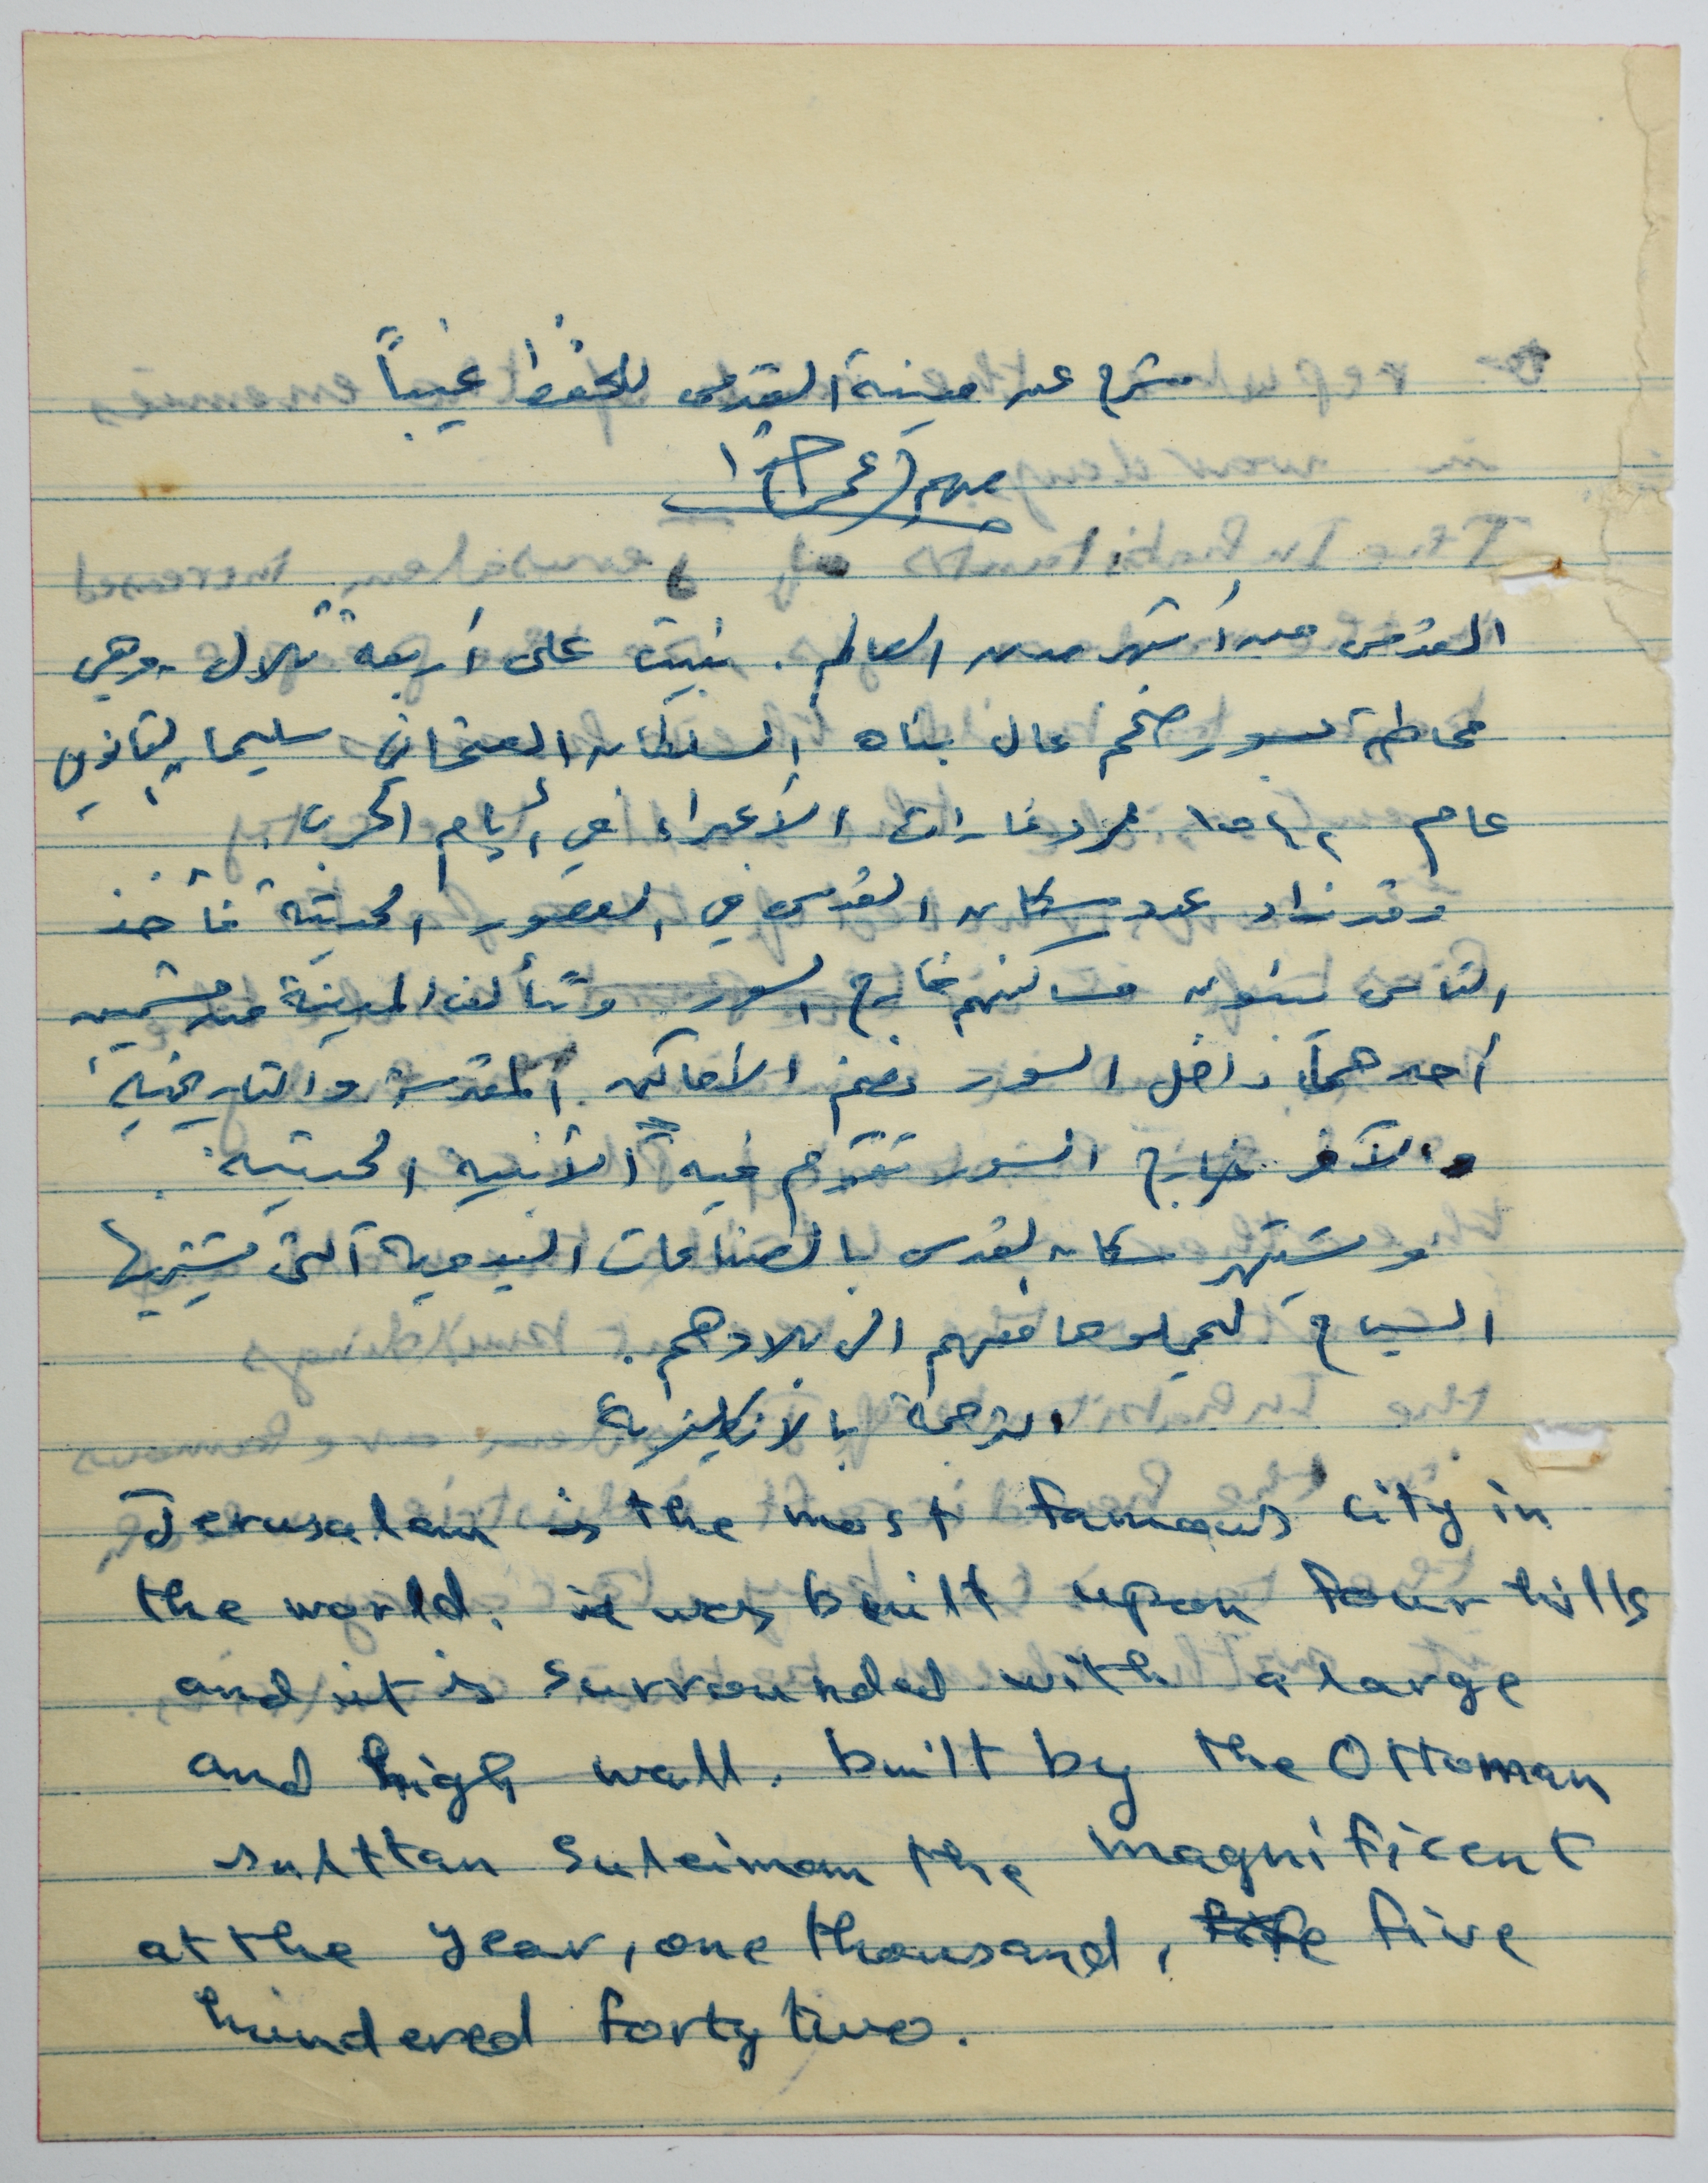 شرح عن مدينة القدس للحفظ غيباً
مهم جدًا
القدس من أشهر مدن العالم. بنيت على أربعة تلال وهي
محاطة بسور ضخم عال بناه السلطان العثماني سليمان القانوني
عام ١٥٤٢ لرد غارات الأعداء في أيام الحرب.
وقد زاد عدد سكان القدس في العصور الحديثة فأخذ
الناس يبنون مساكنهم خارج السور وتتألف المدينة من قسمين
أحدهما داخل السور تضم الأماكن المقدسة والتاريخية
والآخر خارج السور تقوم فيه الأبنية الحديثة.
ويشتهر سكان القدس بالصناعات اليدوية التي يشتريها
السياح ليحملوها معهم الى بلادهم.
الترجمة بالانكليزية
Jerusalem is the most famous city in
the world. it was built upon four hills
and it is surrounded with a large
and high wall. built by the Ottoman
sulttan Suleiman the magnificent
at the year, one thousand, five
hundered forty two.